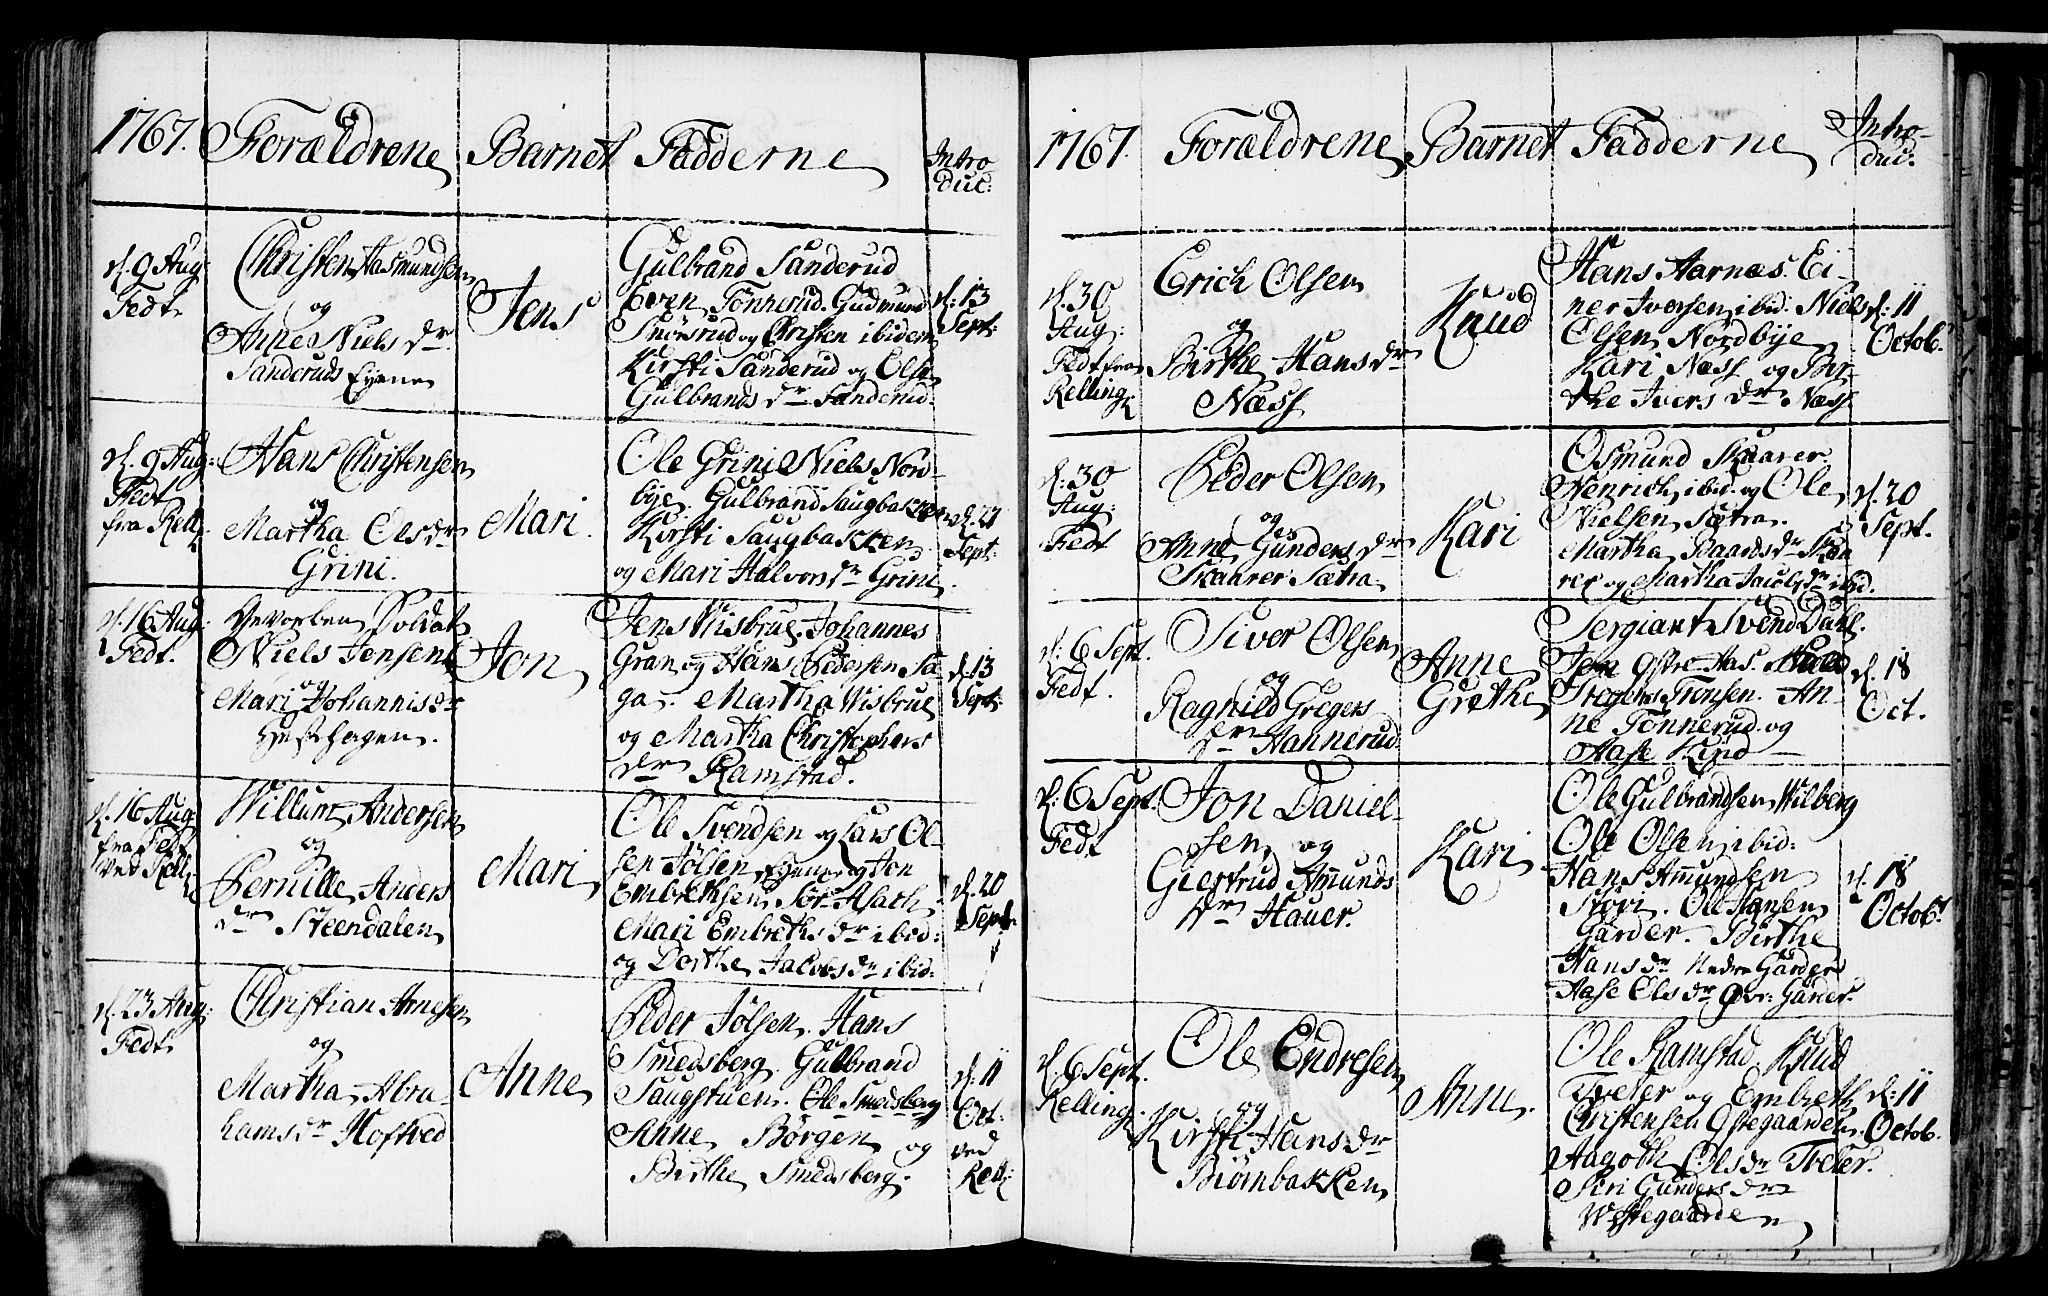 1767. Forældrene Barnet Fadderne Intro
duc:
d. 9 Aug:
Fedt.
Christen Aasmundsen
og
Anne Niels dr
Sanderuds Eyene
Jens
Gulbrand Sanderud
Even Tønnerud. Gudmund
Snørsrud og Christen ibidem
Kirsti Sanderud og Olse
Gulbrands dr Sanderud.
d: 13
Sept:
d. 9 Aug:
Fedt
fra Rell:
Hans Christensen
og
Martha Olsdr
Grini.
Mari.
Ole Grini Niels Nord-
bÿe. Gulbrand Saugbakken
Kirsti Saugbakken
og Mari Halvorsdr Grini
d. 27
Sept:
d. 16 Aug:
Fedt.
Soldat
Niels Jensen
og
Mari Johannisdr
Hesthagen.
Jon
Jens Wisbrue. Johannes
Gran og Hans Pedersen Sa-
ga. Martha Wisbrue
og Martha Christophers
dr Ramstad.
d. 13
Sept:
d. 16 Aug:
fra Fedt
ved Rell:
Willum Andersen
og
Pernille Anders
dr Steendalen
Mari
Ole Svendsen og Lars Ol-
sen Jølsen Eyene og Jon
Embrethsen Sør Asath
Mari Embreths dr ibid:
og Dorthe Jacobs dr ibid:
d. 20
Sept:
d. 23 Aug:
Fedt
Christian Arnesen
og
Martha Abra
hamsdr Hofved
Anne
Peder Jølsen. Hans
Smedsberg. Gulbrand
Saugstuen. Ole Smedsberg
Anne Børgen og
Birthe Smedsberg.
d. 11
Oct:
ved
Rell:
1767. Forældrene Barnet Fadderne Intro-
duc:
d. 30
Aug:
Fedt fra
Relling:
Erich Olsen
og
Birthe Hans dr
Næss
Knud
Hans Aarnæs. Ei-
ner Iversen ibid: Niels
Olsen Nordbÿe
Kari Næss og Bir-
the Ivers dr Næss
d: 11
Octob.
d. 30
Aug:
Fedt
Peder Olsen
og
Anne Gunders dr
Skaarer Sætra
Kari
Osmund Skaarer
Henrich ibid. og Ole
Nielsen Sætra.
Martha Baards dr Skaa
rer og Martha Jacobs dr ibid.
d. 20
Sept.
d. 6 Sept.
Fedt.
Siver Olsen
og
Ragnild Gregers
dr Hannerud.
Anne
Grethe
Sergiant Svend Dahl.
Østre Aas.
Tronsen. An-
ne Tønnerud og
Aase Kind
d. 18
Oct.
d. 6 Sept.
Fedt
Jon Daniel-
sen og
Giertrud Amunds
dr Hauer.
Kari
Ole Gulbrandsen Wilberg
Ole Olsen ibid:
Hans Amundsen
Stori. Ole Hansen
Garder. Birthe
Hans dr Nedre Garder
Aase Els dr øvr: Garder.
d. 18
Octob.
d. 6 Sept.
Relling:
Ole Endresen
og
Kirsti Hans dr
Biørnbakken
Anne.
Ole Ramstad. Knud
Tveter og Embreth
Christensen Østegaarden.
Aagoth Olsdr Tveter.
Siri Gunders dr
Westegaarden
d: 11
Octob.